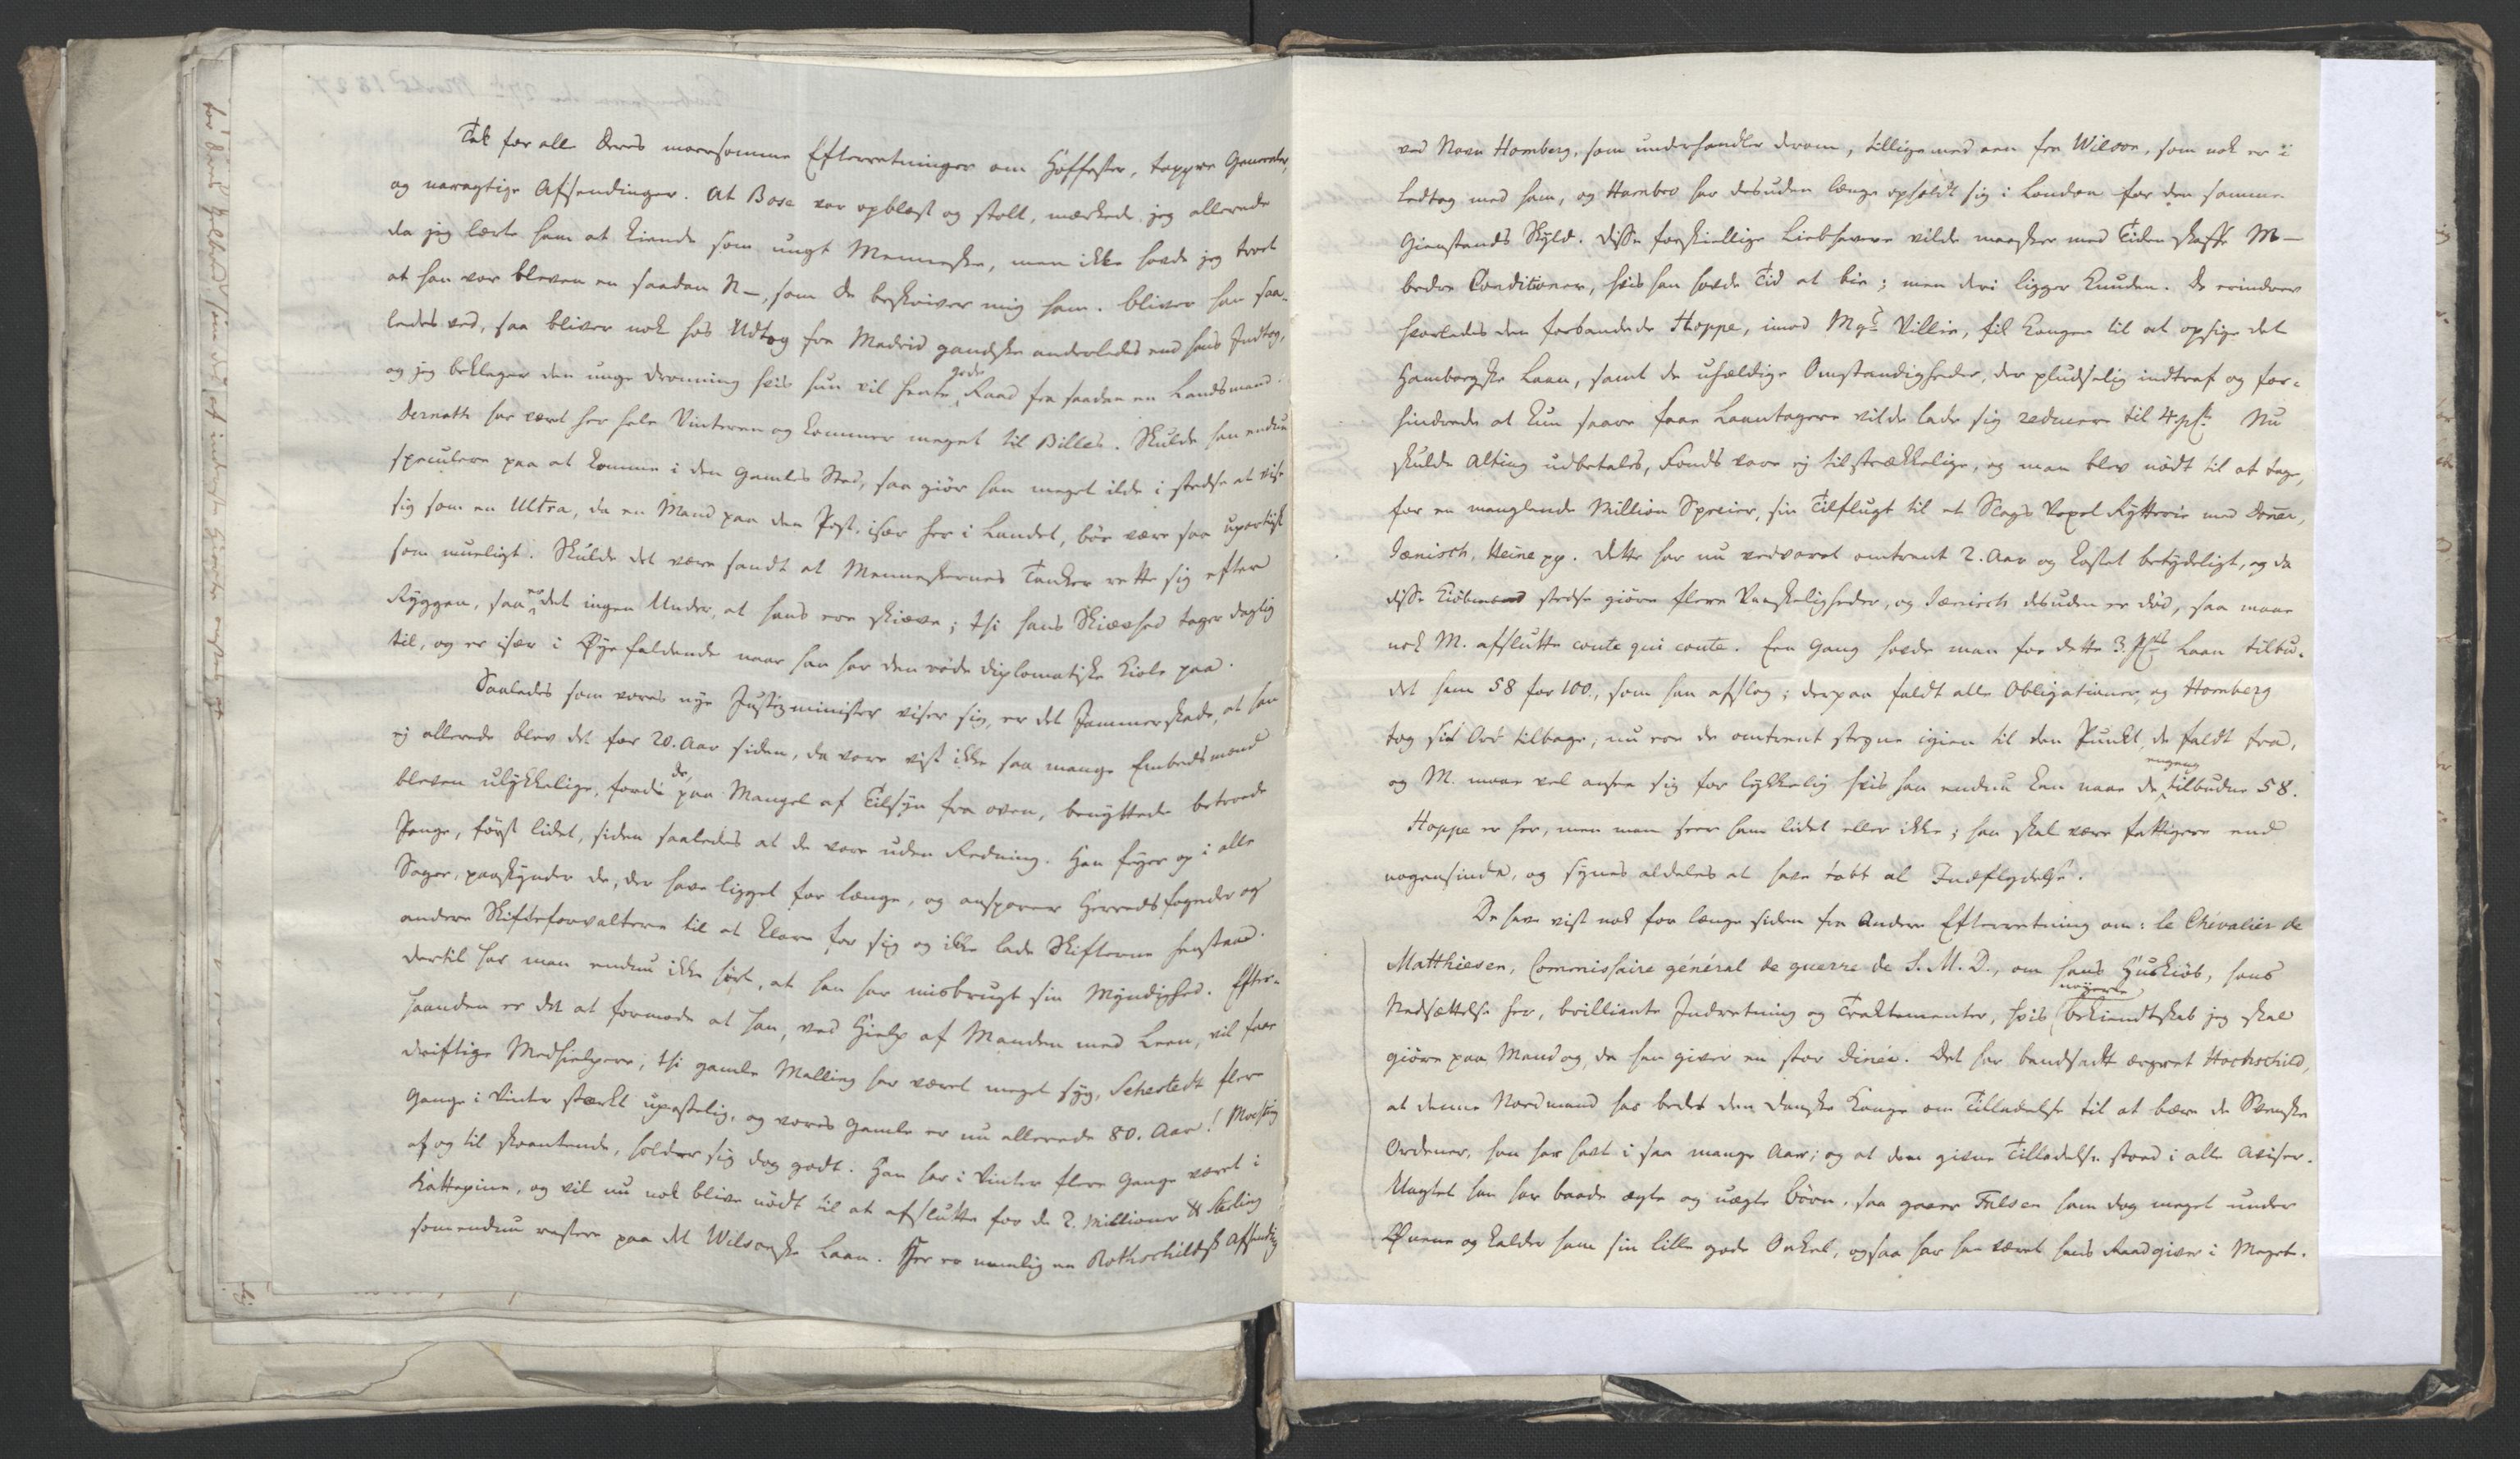 Tak for alle Deres moersomme Efterretninger om Hoffester, tappre Generaler,
og naragtige Afsendinger. At Bose var opblæst og stolt, mærkede jeg allerede
da jeg lærte ham at kiende som ungt Menneske, men ikke havde jeg troet
at han var bleven en saadan N—, som De beskriver mig ham. bliver han saa-
ledes ved, saa bliver nok hos Udtog fra Madrid gandske anderledes end hans Indtog,
og jeg beklager den unge Dronning hvis hun vil hente gode Raad fra saadan en Landsmand.
Dernath har været her hele Vinteren og kommer meget til Billes. Skulde han endnu
speculere paa at komme i den Gamles Sted, saa giør han meget ilde i stedse at vise
sig som en Ultra, da en Mand paa den Post, især her i Landet, bør være saa upartiisk
som mueligt. Skulde det være sandt at Menneskernes Tanker rette sig efter
Ryggen, saa er det ingen Under, at hans ere skiæve; thi hans Skiævhed tager daglig
til, og er især i Øye faldende naar han har den røde diplomatiske Kiole paa.
Saaledes som vores nye Justizminister viser sig, er det Jammerskade, at han
ej allerede blev det for 20. Aar siden, da vare vist ikke saa mange Embedsmænd
bleven ulykkelige, fordi de, paa Mangel af Tilsyn fra oven, benyttede betroede
Penge, først lidet, siden saaledes at de vare uden Redning. Han feyer op i alle
Sager, paaskynder de, der have ligget for længe, og ansporer Herredsfogeder og
andere Skifteforvaltere til at klare for sig og ikke lade Skifterne henstaae.
Dertil har man endnu ikke hørt, at han har misbrugt sin Myndighed. Efter-
haanden er det at formode at han, ved Hielp af Manden med Leen, vil faae
driftige Medhielpere, thi gamle Malling har været meget syg, Sehestedt flere
Gange i Vinter stærkt upasselig, og vores Gamle er nu allerede 80. Aar! Mösting
af og til skrantende, holder sig dog godt. Han har i Vinter flere Gange været i
Kattepine, og vil nu nok blive nødt til at afslutte for de 2. Millioner ℔ Sterling
som endnu restere paa det Wilsonske Laan. Her er nemlig en Rothschildsk Afsending
ved Navn Homberg, som underhandler derom, tillige med een fra Wilson, som nok er i
Ledtog med ham, og Hambro har desuden længe opholdt sig i London for den samme
Gienstands Skyld. Disse forskiellige Liebhavere vilde maaskee med Tiden skaffe M—
bedre Conditioner, hvis han havde Tid at bie; men deri ligger Knuden. De erindrer
hvorledes den forbandede Hoppe, imod Mgs Villie, fik Kongen til at opsige det
Hambergske Laan, samt de uheldige Omstændigheder, der pludselig indtraf og for-
hindrede at kun saare faae Laantagere vilde lade sig reducere til 4 pCt. Nu
skulde Alting udbetales, Fonds vare ej tilstrækkelige, og man blev nødt til at tage,
for en manglende Million Specier, sin Tilflugt til et Slags Vexel Rytterie med Doner,
Jænisch, Heine pp. Dette har nu vedvaret omtrent 2. Aar og kostet betydeligt, og da
disse Kiøbmænd stedse giøre flere Vanskeligheder, og Jænisch desuden er død, saa maae
nok M. afslutte coute qui coute. Een Gang havde man for dette 3. pCts Laan tilbu-
det ham 58 for 100., som han afslog; derpaa faldt alle Obligationer, og Homberg
tog sit Ord tilbage, nu ere de omtrent stegne igien til den Punkt de faldt fra,
og M. maae vel ansee sig for lykkelig hvis han endnu kan naae de engang tilbudne 58.
Hoppe er her, men man seer ham lidet eller ikke; han skal være fattigere end
nogensinde, og synes aldeles at have tabt al Indflydelse.
De have vist nok for længe siden fra Andere Efterretning om: le Chévalier de
Matthiesen, Commissaire général de guerre de S. M. D., om hans Huuskiøb, hans
Nedsættelse her, brilliante Indretning og Tractementer, hvis nøyere bekiendtskab jeg skal
giøre paa Mandag, da han giver en stor Dinée. Det har bandsadt ærgret Hochschild,
at denne Nordmand har bedet den danske Konge om Tilladelse til at bære de Svenske
Ordener, han har havt i saa mange Aar; og at den givne Tilladelse stod i alle Aviser.
Uagtet han har baade ægte og uægte børn, saa gaaer Falsen ham dog meget under
Øinene og kalder ham sin lille gode Onkel, ogsaa har han været hans Raadgiver i Meget.